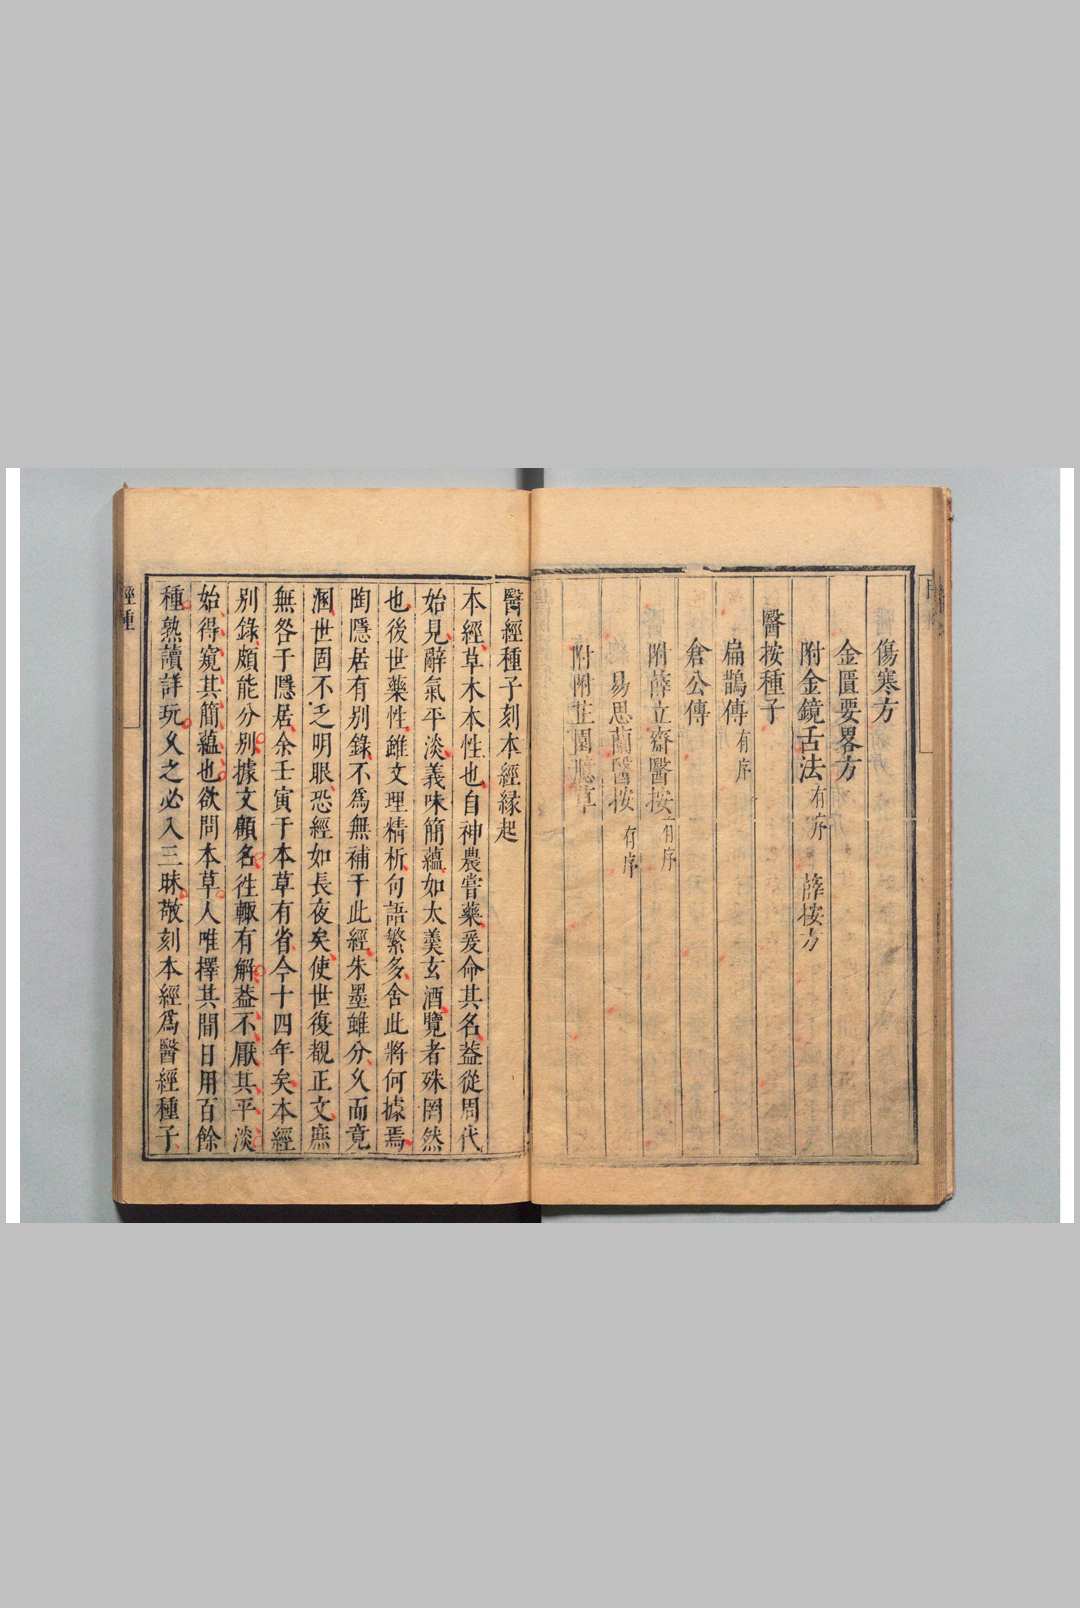 傷寒方
金匱要畧方
附金鏡舌法有序 薛按方
醫按種子
扁鵲傳有序
倉公傳
附薛立齋醫按有序
易思蘭醫按有序
醫經種子刻本經縁起
本經草木本性也自神農嘗藥爰命其名葢從周代
始見辭氣平淡義味簡蘊如太羹玄酒覽者殊罔然
也後世藥性雖文理精析句語繁多舍此將何據焉
陶隱居有別錄不爲無補于此經朱墨雖分乆而竟
溷世固不乏明眼恐經如長夜矣使世復覩正文庶
無咎于隱居余壬寅于本草有省今十四年矣本經
別錄頗能分別據文顧名徃輙有解葢不厭其平淡
始得窺其簡蘊也欲問本草人唯擇其間日用百餘
種熟讀詳玩乆之必入三昧敬刻本經爲醫經種子